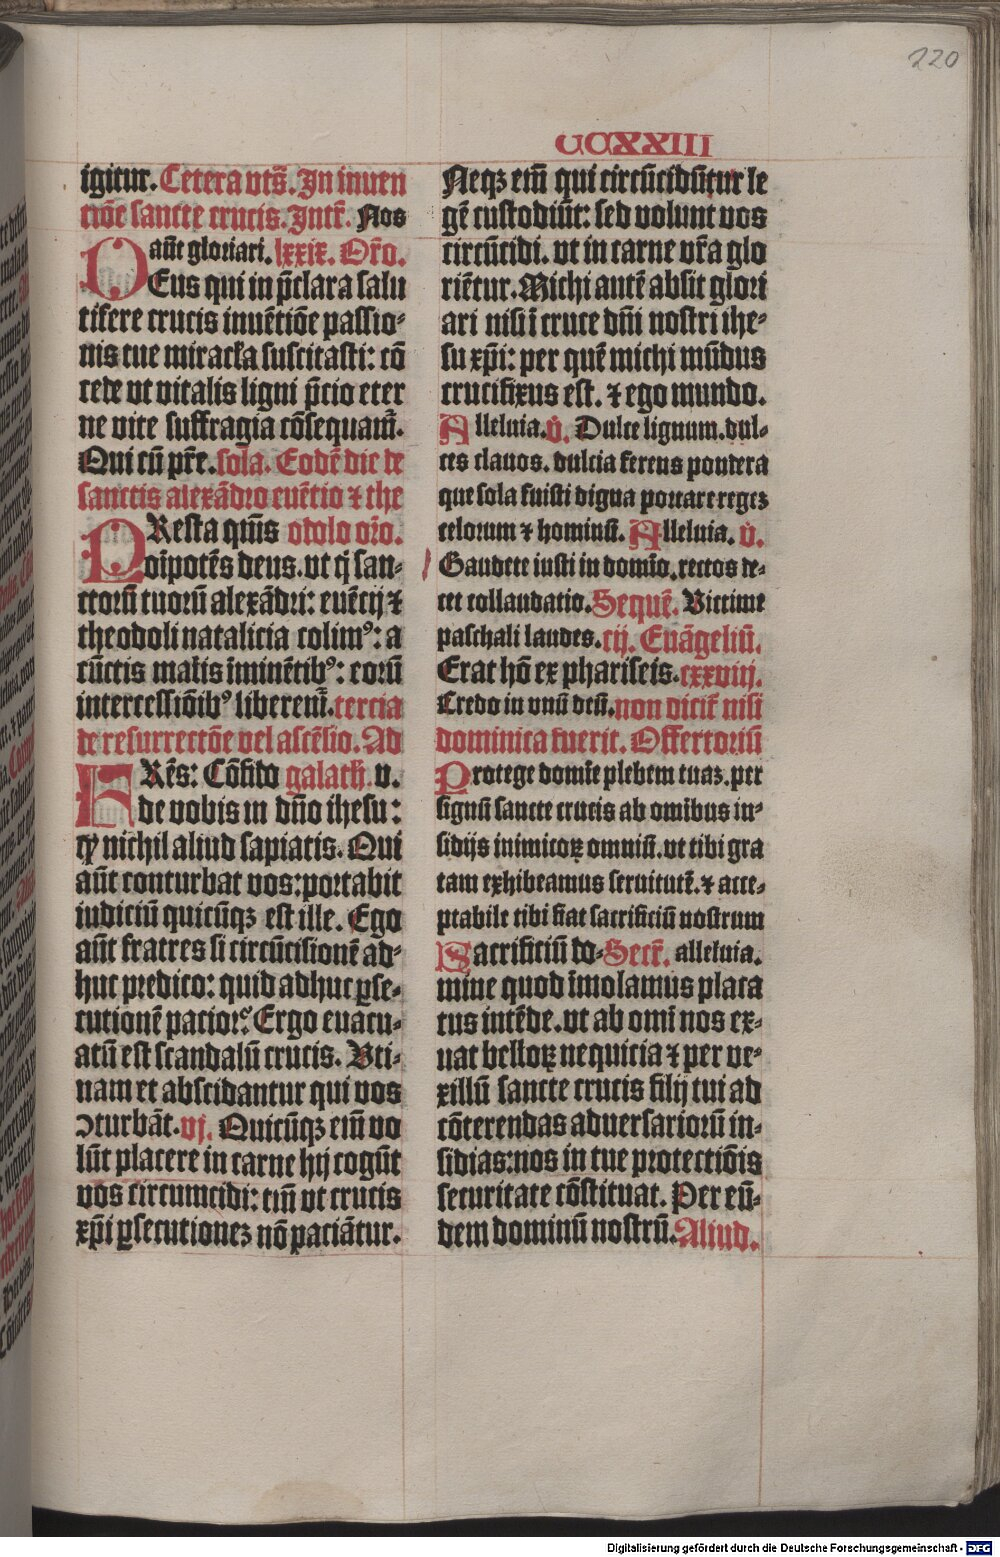 220
CCXXIII
igitur. Cetera vts̄. In inuen
tiōe sancte crucis. Intr̄. Nos
aūt gloriari. lxxix. Or̄o.
DEus qui in p̄clara salu
tifere crucis inuētiōe passio-
nis tue miracła suscitasti: cō
cede vt vitalis ligni p̄cio eter
ne vite suffragia cōsequam̄.
Qui cū pr̄e. sola. Eodē die de
sanctis alexādro euētio ⁊ the
PResta qm̄s odolo or̄o.
oīpotēs deus. vt q̄ san-
ctorū tuorū alexādri: euētij ⁊
theodoli natalicia colimꝰ: a
cūctis malis īminētibꝰ: eorū
intercessiōibꝰ liberem̄. tercia
de resurrectōe vel ascēsio. Ad
FRēs: Cōfido galath. v.
de vobis in dn̄o ihesu:
qͥ nichil aliud sapiatis. Qui
aūt conturbat vos: portabit
iudiciū quicūqꝫ est ille. Ego
aūt fratres si circūcisionē ad-
huc predico: quid adhuc ꝑse-
cutionē patior? Ergo euacu-
atū est scandalū crucis. Vti-
nam et abscidantur qui vos
ↄturbāt. vj. Quicūqꝫ eīm vo
lūt placere in carne hij cogūt
vos circumcidi: tm̄ vt crucis
xp̄i ꝑsecutionez nō paciātur.
Neqꝫ eīm qui circūcidūtur le
gē custodiūt: sed volunt vos
circūcidi. vt in carne vr̄a glo
riētur. Michi autē absit glori
ari nisi ī cruce dn̄i nostri ihe-
su xp̄i: per quē michi mūdus
crucifixus est. ⁊ ego mundo.
Alleluia. v̄. Dulce lignum. dul-
ces clauos. dulcia ferens pondera
que sola fuisti digna portare regeꝫ
celorum ⁊ hominū. Alleluia. v̄.
Gaudete iusti in domīo. rectos de-
cet collaudatio. Sequē. Victime
paschali laudes. cij. Euāgeliū.
Erat hō ex phariseis. cxxviij.
Credo in vnū deū. non dicit̄ nisi
dominica fuerit. Offertoriū
Protege domīe plebem tuaꝫ. per
signū sancte crucis ab omībus in-
sidijs inimicoꝝ omniū. vt tibi gra
tam exhibeamus seruitutē. ⁊ acce-
ptabile tibi fiat sacrificiū nostrum
Sacrificiū do- Secr̄. alleluia.
mine quod īmolamus placa
tus intēde. vt ab omī nos ex-
uat belloꝝ nequicia ⁊ per ve-
xillū sancte crucis filij tui ad
cōterendas aduersariorū in-
sidias: nos in tue protectiōis
securitate cōstituat. Per eū-
dem dominū nostrū. Aliud.
Digitalisierung gefördert durch die Deutsche Forschungsgemeinschaft - DFG